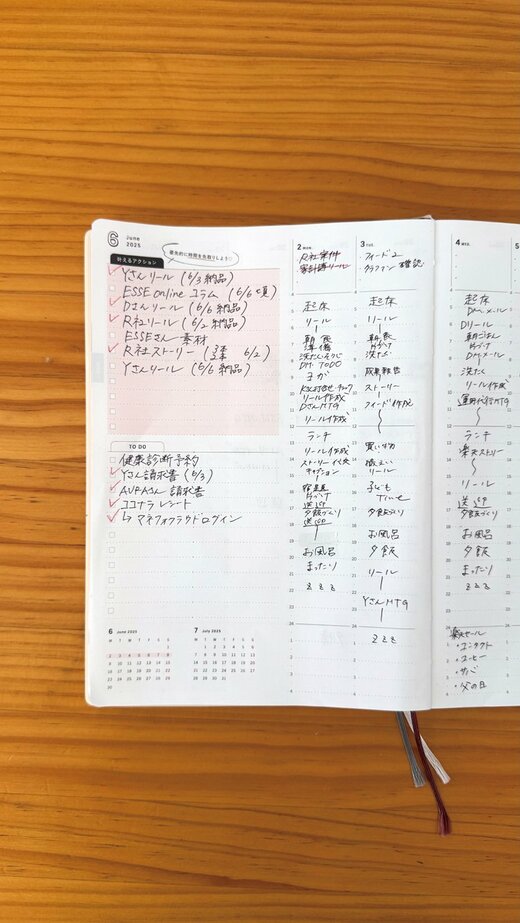 6 June 2025
優先的に時間を先取りしよう♡
叶えるアクション
Yさんリール (6/3 納品)
ESSE online コラム (6/6 〆)
Dさんリール (6/6 納品)
R社リール (6/2 納品)
ESSEさん 素材
R社ストーリー ( 6/2)
Yさんリール (6/6 納品)
TO DO
健康診断予約
Yさん請求書 (6/3)
請求書
ココナラ レシート
↳ マネフォクラウドログイン
6 June 2025
M T W T F S S
1
2 3 4 5 6 7 8
9 10 11 12 13 14 15
16 17 18 19 20 21 22
23 24 25 26 27 28 29
30
7 July 2025
M T W T F S S
1 2 3 4 5 6
7 8 9 10 11 12 13
14 15 16 17 18 19 20
21 22 23 24 25 26 27
28 29 30 31
2 MON.
R社案件
家計簿リール
起床
リール
朝食
準備
洗たく
DM TODO
ヨガ
リール作成
DさんMTG
リール作成
ランチ
リール作成
夕飯づくり
お風呂
まったり
z z z
3 TUE.
フィード2
確認
起床
リール
朝食
片づけ
洗たく
ストーリー
フィード作成
ランチ
買い物
リール
子ども
Time
夕飯づくり
お風呂
夕飯
リール
YさんMTG
z z z
4 WED.
起床
DM、メール
Dリール
朝ごはん
片づけ
DMメール
洗たく
リール作成
運用代行MTG
ランチ
楽天ストーリー
リール
送迎
夕飯づくり
お風呂
夕飯
z z z
楽天セール
・コンタクト
・コーヒー
・サバ
・父の日
5